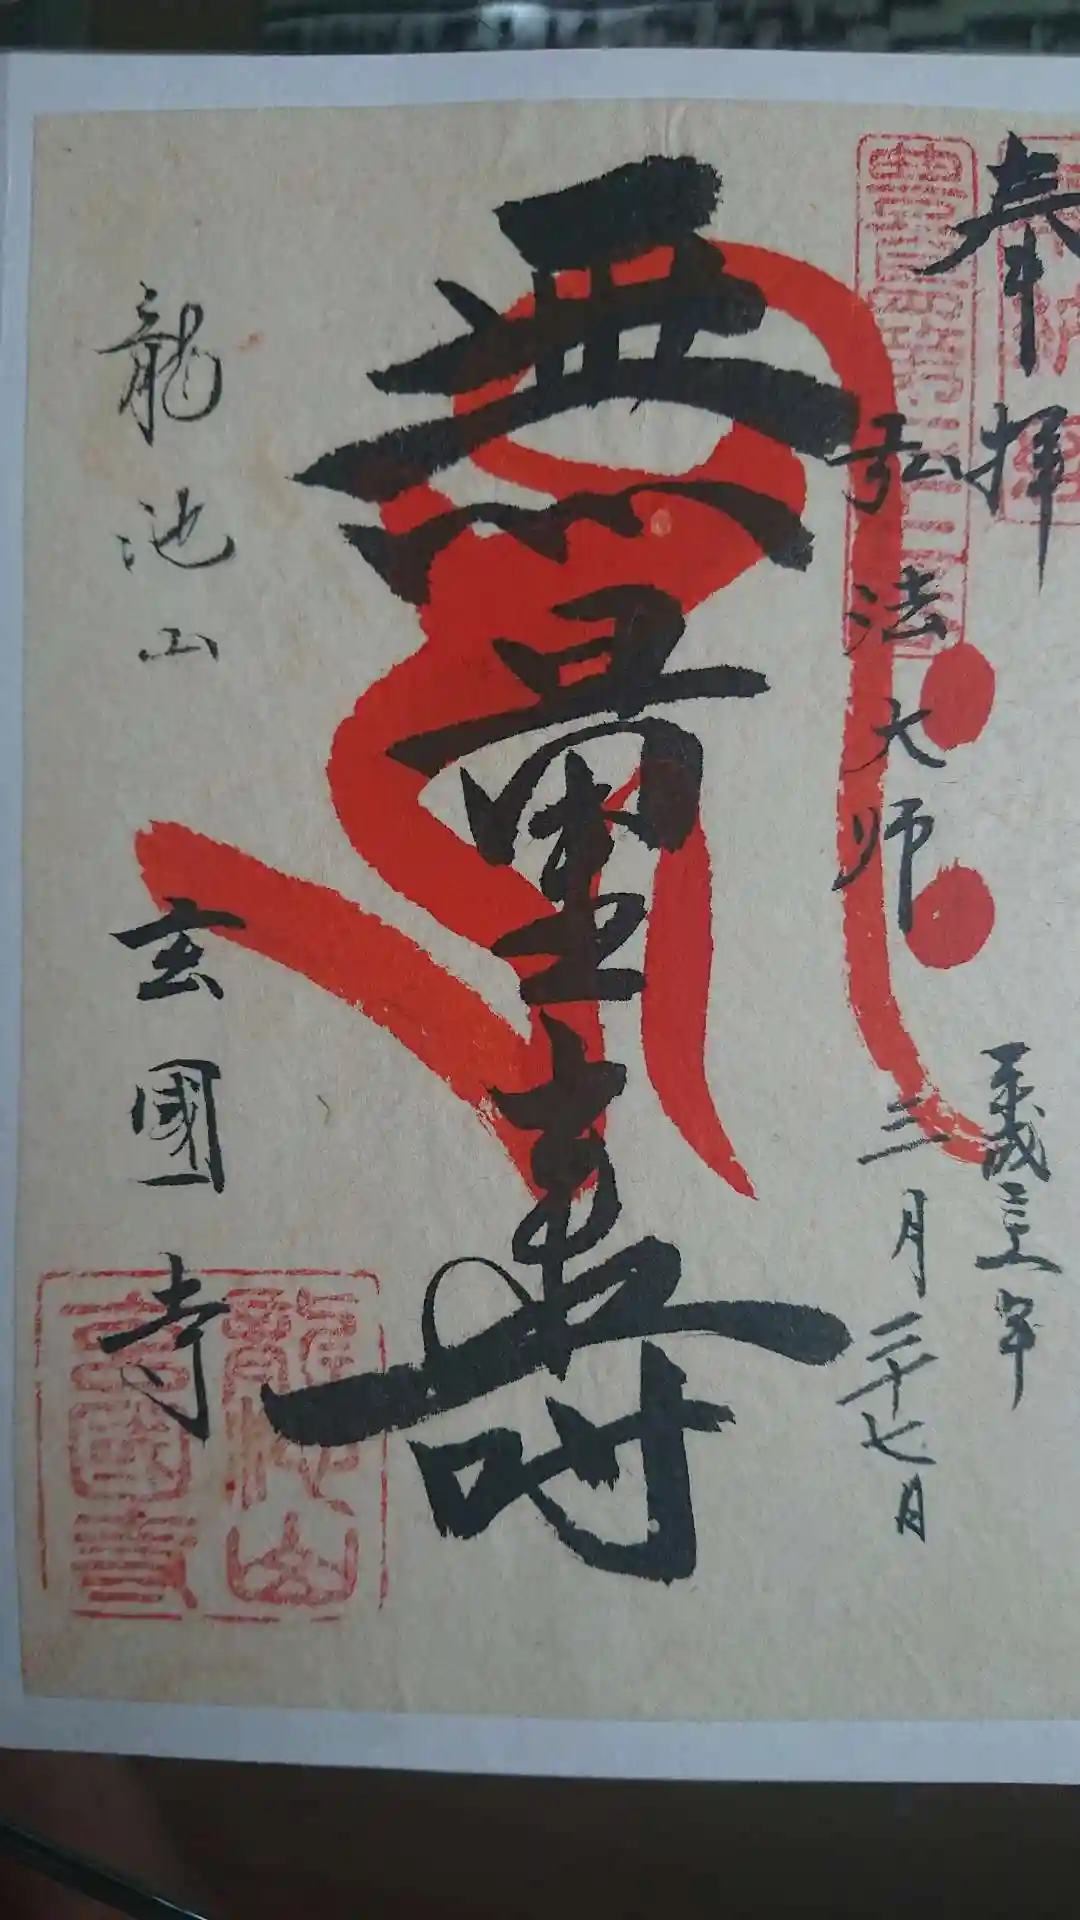 奉拝
弘法大师
平成三十一年
三月二十七日
無量寿
龍池山
玄國寺
龍池山
玄國寺